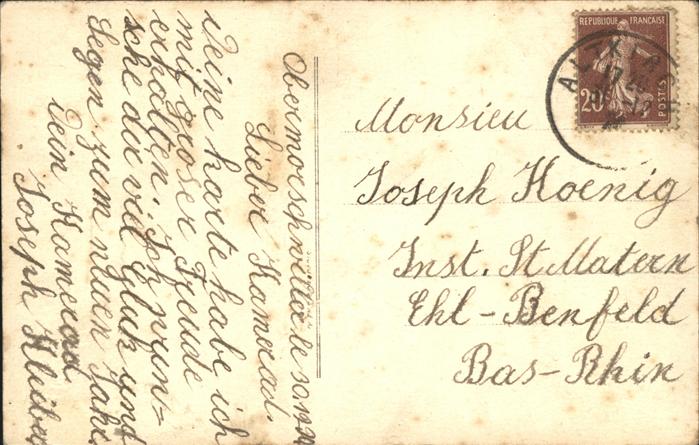 Obermorschwiller le 30.12.
Lieber Kamerad.
Deine karte habe ich
mit groser Freude
erhalten. Ich wün=
sche dir viel Gluk und
Segen zum neuen Jahr.
Dein Kamerad
Joseph
REPUBLIQUE FRANÇAISE
20 POSTES
Monsieu
Joseph Hoenig
Inst. St. Matern
Ehl-Benfeld
Bas-Rhin